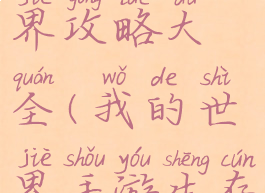 jiè gōng lüè dà
界攻略大
quán wǒ de shì
全(我的世
jiè shǒu yóu shēng cún
界手游生存